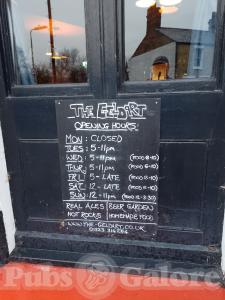 THE GELDART
OPENING HOURS:
MON: CLOSED
TUES: 5-11pm
WED: 5-11pm (FOOD 6-10)
THUR: 5-11pm (FOOD 6-10)
FRI: 5-LATE (FOOD 5-10)
SAT: 12-LATE (FOOD 12-10)
SUN: 12-11pm (FOOD 12-3:30)
REAL ALES BEER GARDEN
HOT ROCKS HOMEMADE FOOD
WWW.THE-GELDART.CO.UK
01223 314264
Pubs Galore